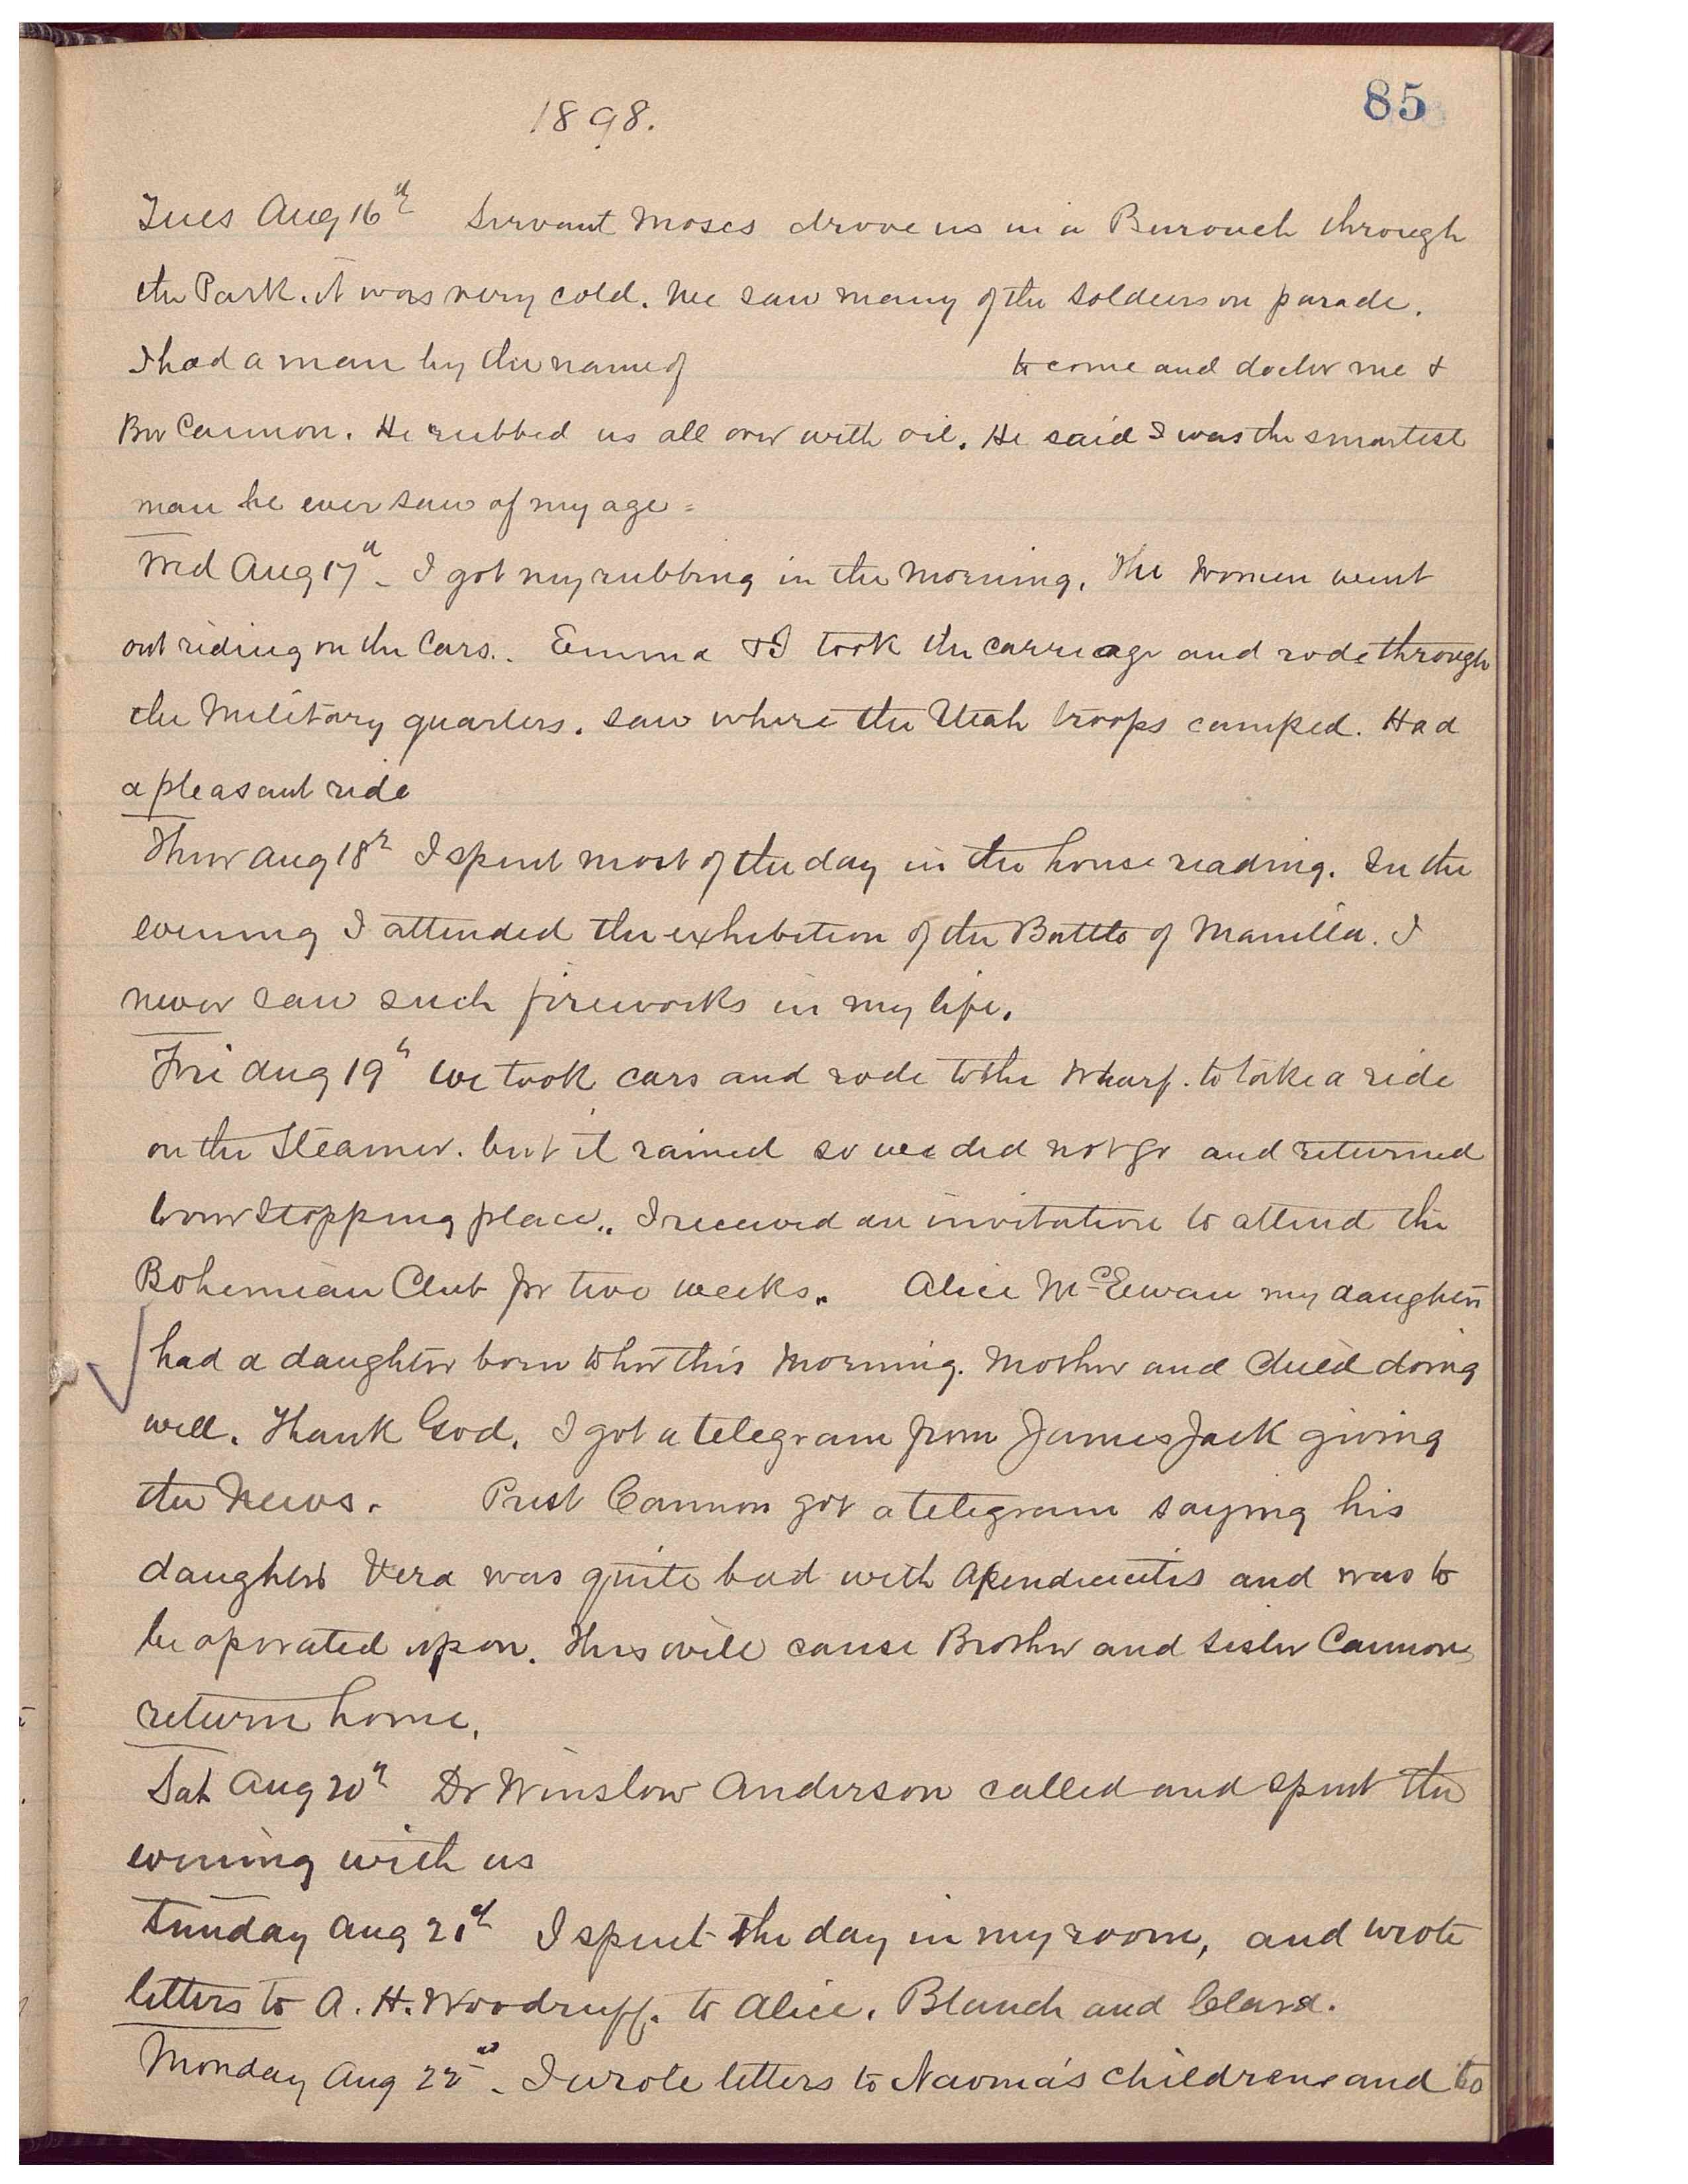 85
1898.
Tues Aug 16th Servant Moses drove us in a Burouch through
the Park. it was very cold. We saw many of the soldiers on parade.
I had a man by the name of to come and doctor me &
Bro Cannon. He rubbed us all over with oil. He said I was the smartest
man he ever saw of my age =
Wed Aug 17th - I got my rubbing in the morning. The Women went
out riding on the Cars.. Emma & I took the carriage and rode through
the Military quarters. saw where the Utah troops camped. Had
a pleasant ride
Thur Aug 18th I spent most of the day in the house reading. In the
evening I attended the exhibition of the Battle of Manilla. I
never saw such fireworks in my life.
Fri Aug 19th We took cars and rode to the Wharf. to take a ride
on the Steamer. but it rained so we did not go and returned
to our stopping place.. I received an invitation to attend the
Bohemian Club for two weeks. Alice McEwan my daughter
had a daughter born to her this Morning. Mother and Child doing
well. Thank God. I got a telegram from James Jack giving
the News. Prest Cannon got a telegram saying his
daughter Vera was quite bad with Apendicitis and was to
be oporated upon. This will cause Brother and Sister Cannon
return home.
Sat Aug 20th Dr Winslow Anderson called and spent the
evening with us
Sunday Aug 21st I spent the day in my room, and wrote
letters to A. H. Woodruff. to Alice. Blanch and Clara.
Monday Aug 22nd - I wrote letters to Naoma's children and to